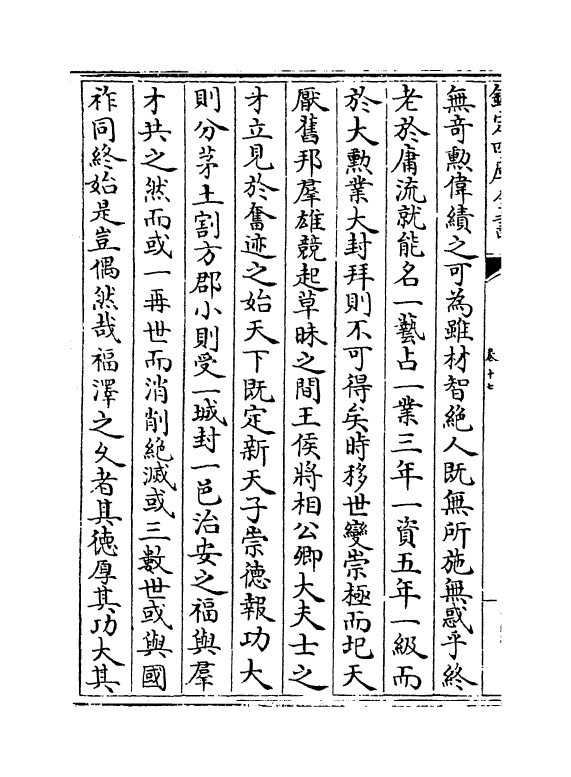 欽定四庫全書
卷十七
無竒勲偉績之可為雖材智絶人既無所施無惑乎終
老於庸流就能名一藝占一業三年一資五年一級而
於大勲業大封拜則不可得矣時移世變崇極而圮天
厭舊邦羣雄競起草昧之間王侯將相公卿大夫士之
才立見於奮迹之始天下既定新天子崇德報功大
則分茅土割方郡小則受一城封一邑治安之福與羣
才共之然而或一再世而消削絶滅或三數世或與國
祚同終始是豈偶然哉福澤之久者其徳厚其功大其